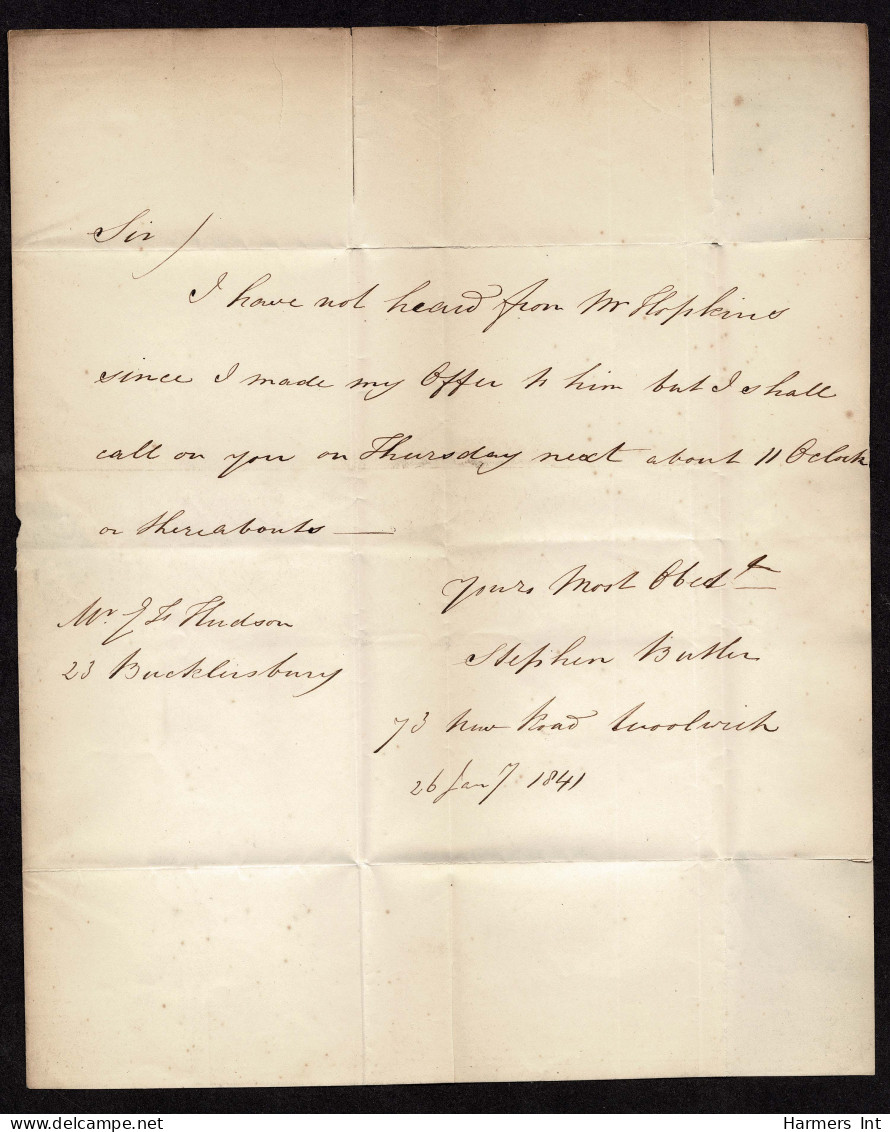 Sir)
I have not heard from Mr Hopkins
since I made my Offer to him but I shall
call on you on Thursday next about 11 Oclock
or thereabouts —
Yours Most Obedt
Mr J H Hudson
Stephen Butler
23 Bucklersbury
73 New Road Woolwich
26 Jany 1841
delcampe.net
Harmers Int